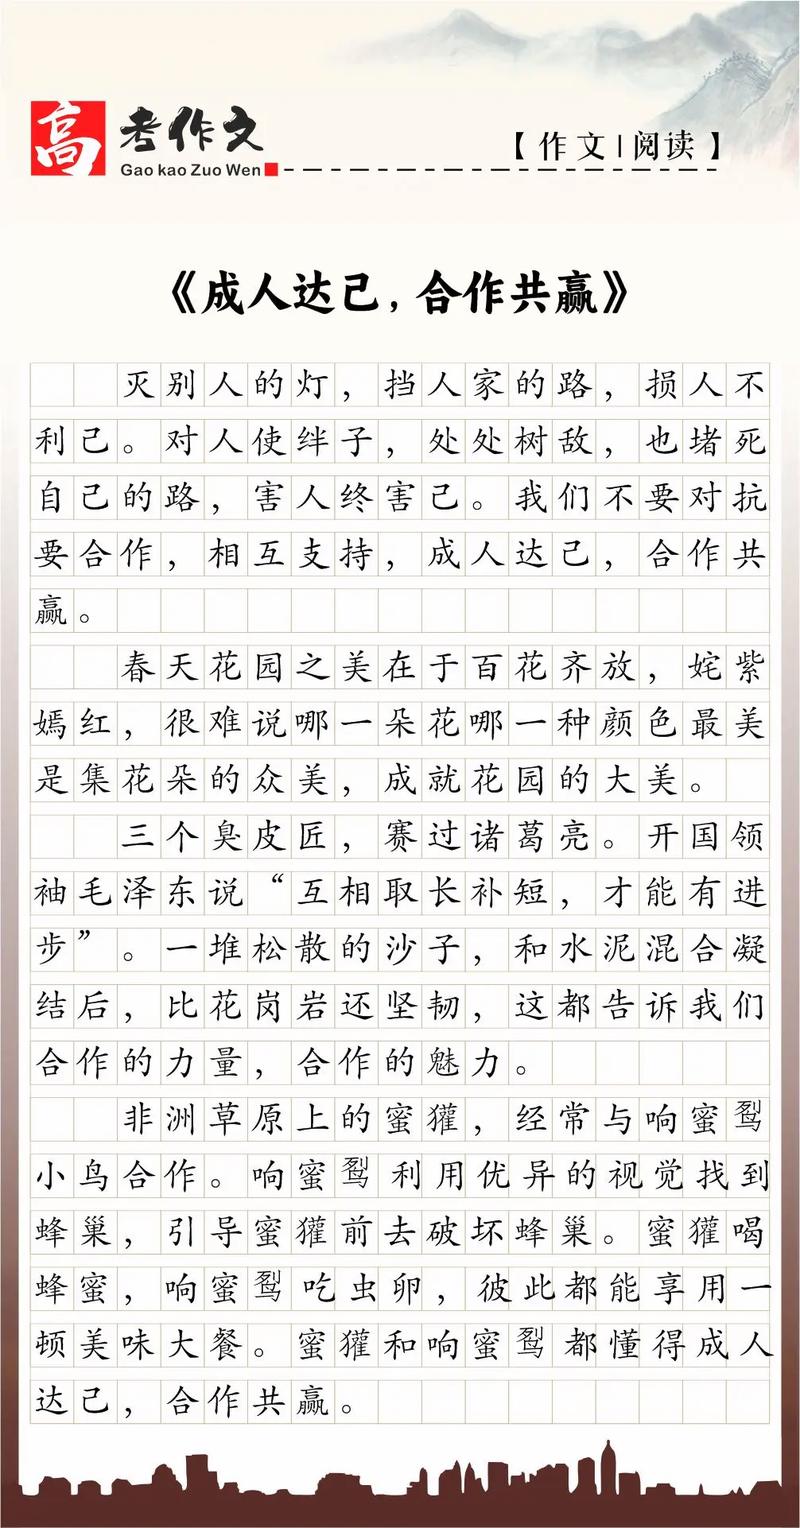 高考作文
Gao kao Zuo Wen
【作文|阅读】
《成人达己,合作共赢》
灭别人的灯,挡人家的路,损人不
利己。对人使绊子,处处树敌,也堵死
自己的路,害人终害己。我们不要对抗
要合作,相互支持,成人达己,合作共
赢。
春天花园之美在于百花齐放,姹紫
嫣红,很难说哪一朵花哪一种颜色最美
是集花朵的众美,成就花园的大美。
三个臭皮匠,赛过诸葛亮。开国领
袖毛泽东说“互相取长补短,才能有进
步”。一堆松散的沙子,和水泥混合凝
结后,比花岗岩还坚韧,这都告诉我们
合作的力量,合作的魅力。
非洲草原上的蜜獾,经常与响蜜䴕
小鸟合作。响蜜䴕利用优异的视觉找到
蜂巢,引导蜜獾前去破坏蜂巢。蜜獾喝
蜂蜜,响蜜䴕吃虫卵,彼此都能享用一
顿美味大餐。蜜獾和响蜜䴕都懂得成人
达己,合作共赢。